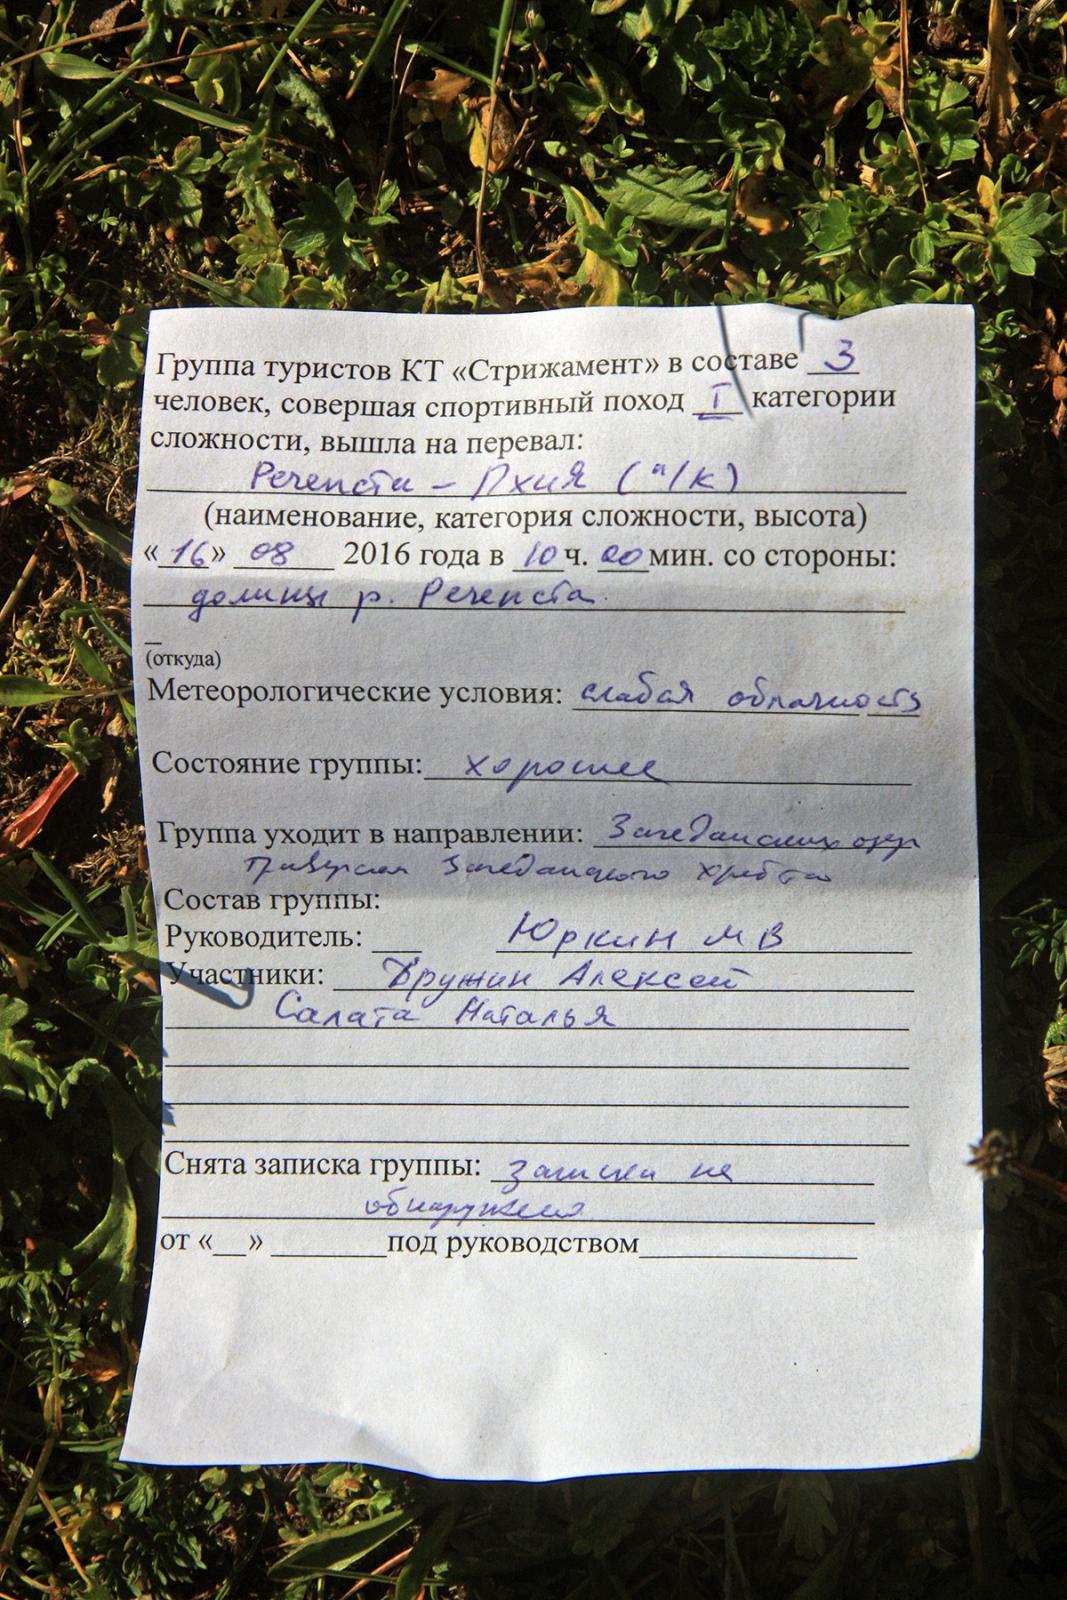 Группа туристов КТ «Стрижамент» в составе 3
человек, совершая спортивный поход I категории
сложности, вышла на перевал:
Речепста – Пхия (н/к)
(наименование, категория сложности, высота)
«16» 08 2016 года в 10 ч. 00 мин. со стороны:
долины р. Речепста
(откуда)
Метеорологические условия: слабая облачность
Состояние группы: хорошее
Группа уходит в направлении: Загеданских озер
траверсом Загеданского хребта
Состав группы:
Руководитель: Юркин М В
Участники: Дружин Алексей
Салата Наталья
Снята записка группы: записки не
обнаружено
от «__» ________ под руководством